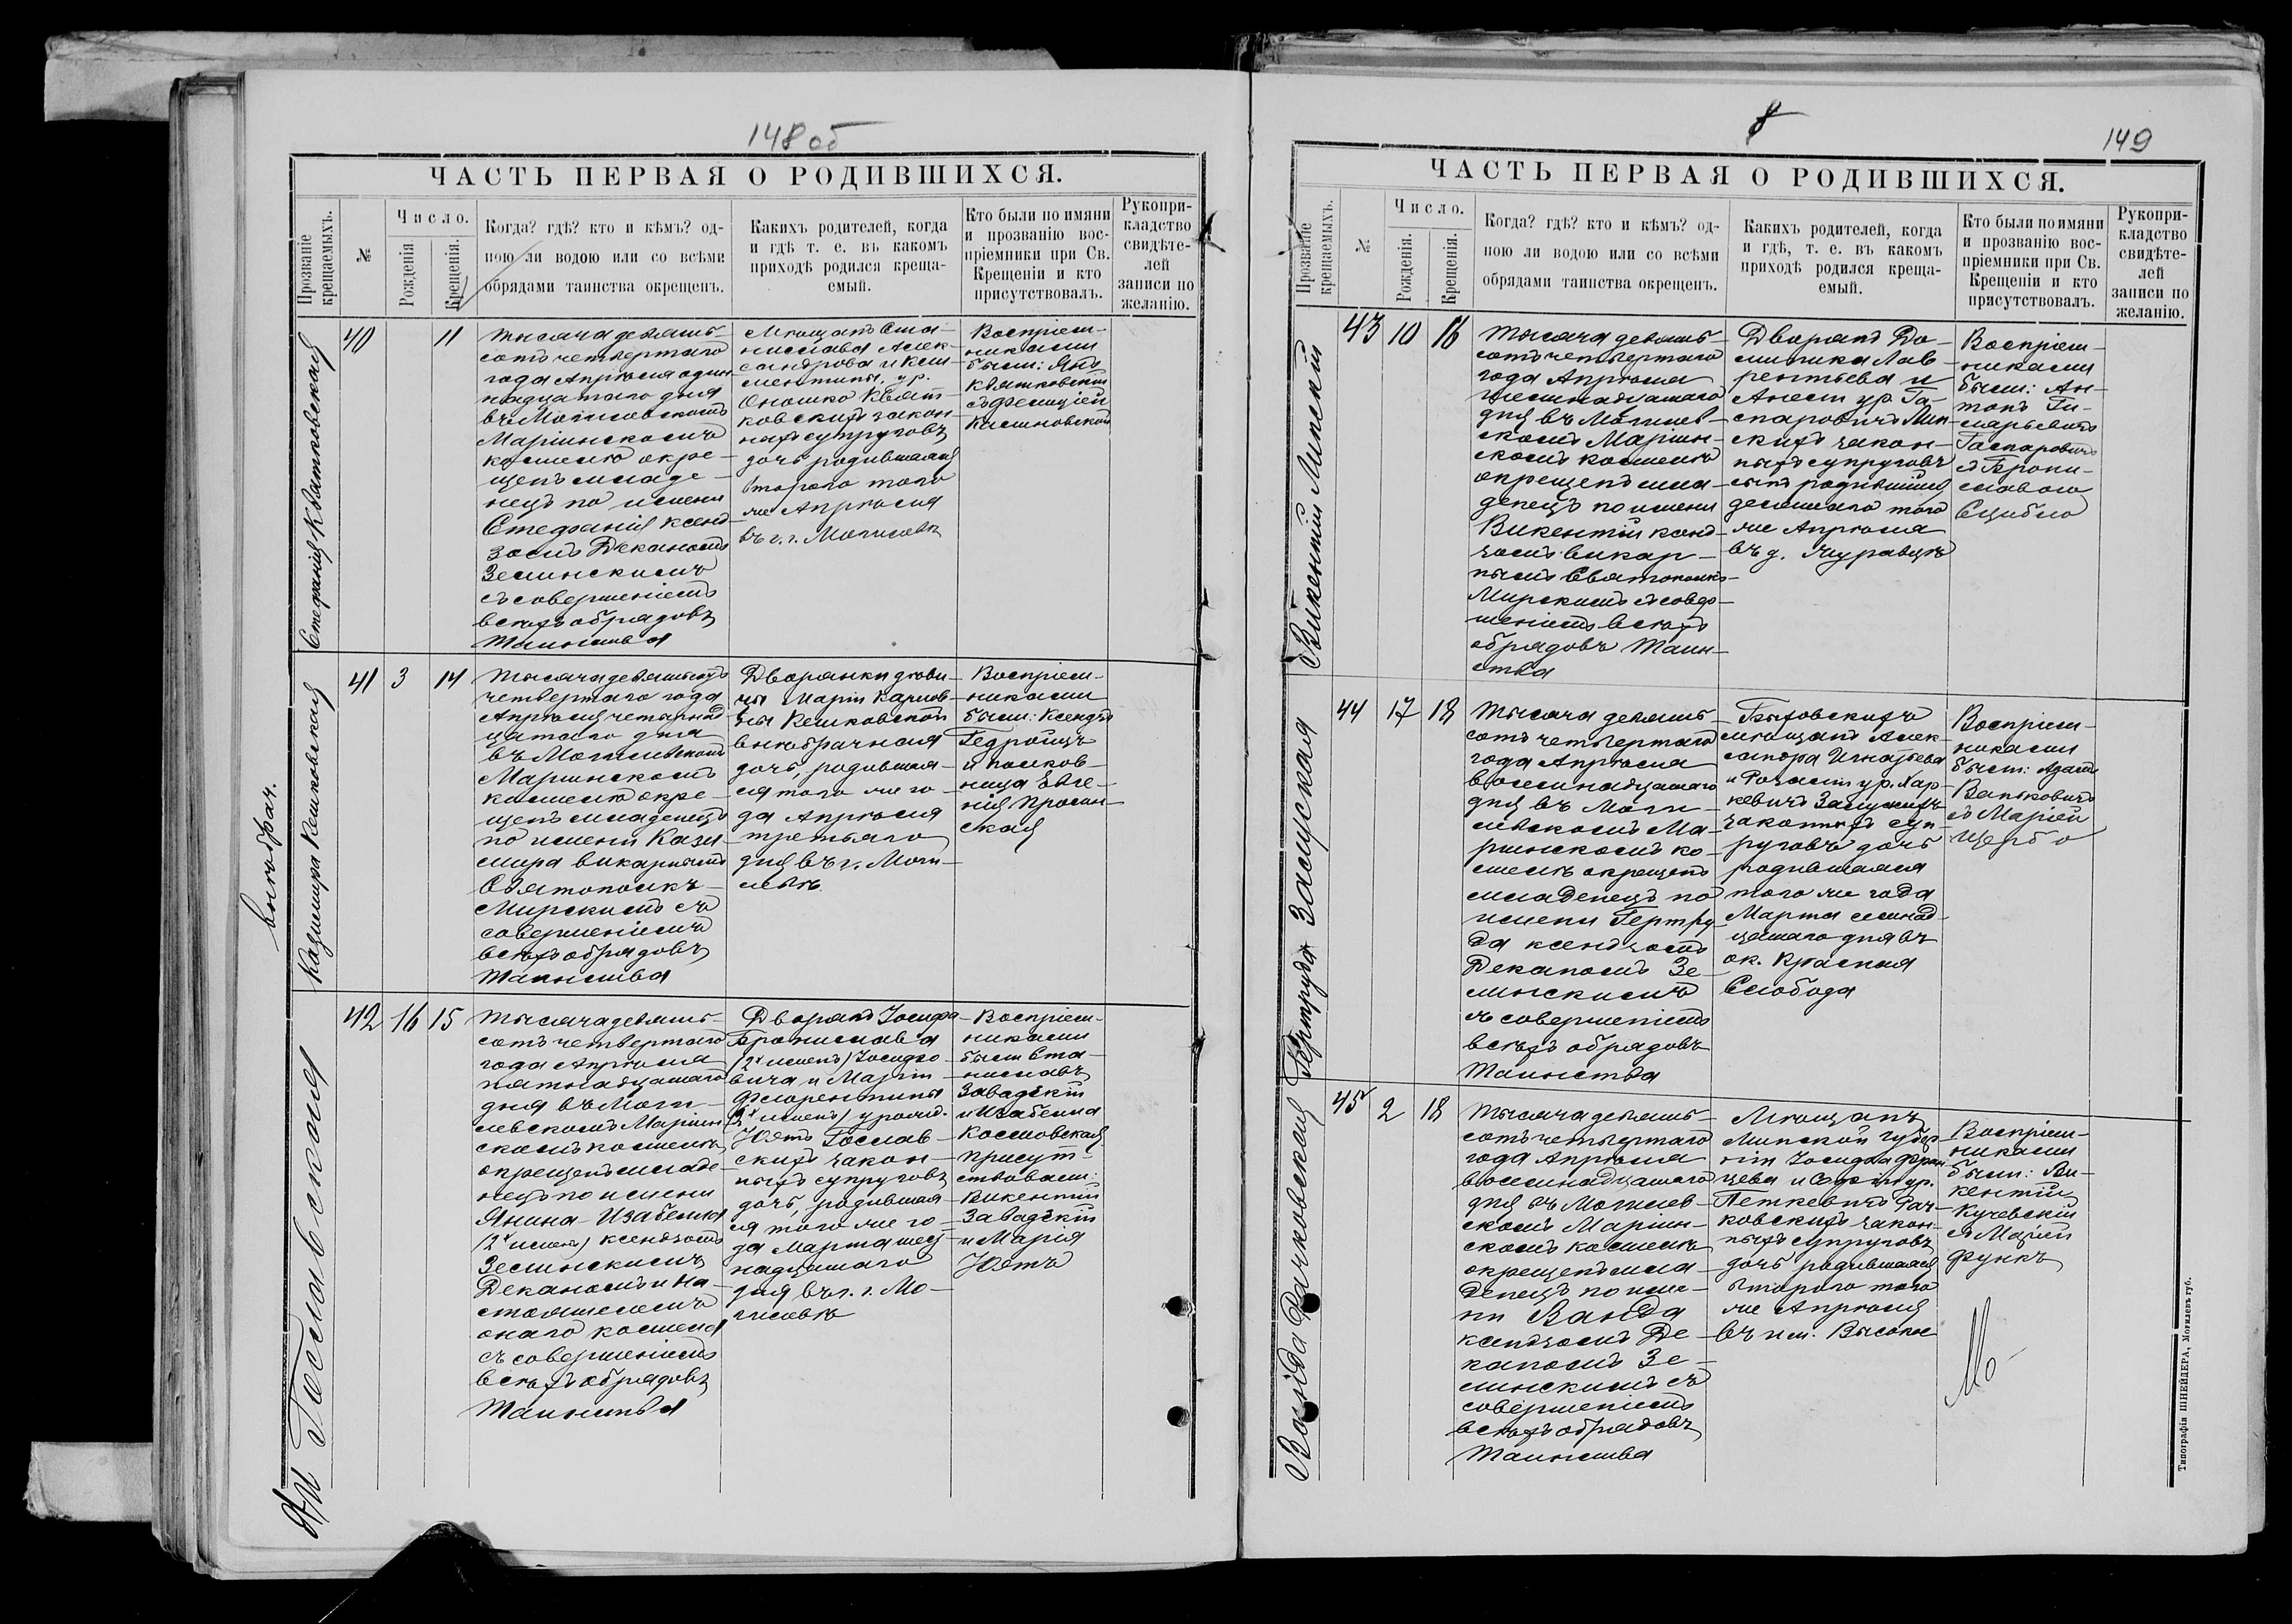 148 об
ЧАСТЬ ПЕРВАЯ О РОДИВШИХСЯ.
Прозваніе
крещаемыхъ.
№
Число.
Рожденія
Крещенія.
Когда? гдѣ? кто и кѣмъ? од-
ною ли водою или со всѣми
обрядами таинства окрещенъ.
Какихъ родителей, когда
и гдѣ т. е. въ какомъ
приходѣ родился креща-
емый.
Кто были по имяни
и прозванію вос-
пріемники при Св.
Крещеніи и кто
присутствовалъ.
Рукопри-
кладство
свидѣте-
лей
записи по
желанію.
Стефанія Квятковская
40
11
Тысяча девять-
сотъ четвертаго
года Апрѣля один-
надцатаго дня
въ Могилевскомъ
Маріинскомъ
костелѣ окре-
щенъ младе-
нецъ по имени
Стефанія ксенд-
зомъ Деканомъ
Зелинскимъ
съ совершеніемъ
всѣхъ обрядовъ
Таинства
Мѣщанъ Ста-
нислава Алек-
сандрова и Кле-
ментины, ур.
Оношко Квят-
ковскихъ закон-
ныхъ супруговъ
дочь родившаяся
втораго того
же Апрѣля
въ г. г. Могилевѣ
Воспріем-
никами
были: Янъ
Квятковскій
съ Фелиціей
внѣбрач.
Казимира Кешковская
41
3
14
Тысяча девятьсотъ
четвертаго года
Апрѣля четырнад-
цатаго дня
въ Могилевскомъ
Маріинскомъ
костелѣ окре-
щенъ младенецъ
по имени Кази-
мира викарнымъ
Святополкъ-
Мирскимъ съ
совершеніемъ
всѣхъ обрядовъ
Таинства
Дворянки дѣви-
цы Маріи Карлов-
ны Кешковской
внѣбрачная
дочь, родившая-
ся того же го-
да Апрѣля
третьяго
дня въ г. Моги-
левѣ
Воспріем-
никами
были: Ксендзъ
Гедройцъ
и полков-
ница Евге-
нія
Янина Гославская
42
16
15
Тысяча девять-
сотъ четвертаго
года Апрѣля
пятнадцатаго
дня въ Моги-
левскомъ Маріин-
скомъ костелѣ
окрещенъ младе-
нецъ по имени
Янина-Изабелла
(2х именъ) ксендзомъ
Зелинскимъ
Деканомъ и на-
стоятелемъ
онаго костела
съ совершеніемъ
всѣхъ обрядовъ
Таинства
Дворянъ Іосифа
Бронислава
(2х именъ) Іосифо-
вича и Маріи
Флорентины
(2х именъ) урожд.
Юятъ Гослав-
скихъ закон-
ныхъ супруговъ
дочь, родившая-
ся того же го-
да Марта шест-
надцатаго
дня въ г. г. Мо-
гилевѣ
Воспріем-
никами
были Ста-
ниславъ
Завадскій
и Изабелла
Косновская
присут-
ствовали:
Викентій
Завадскій
и Марія
Юятъ
8
149
ЧАСТЬ ПЕРВАЯ О РОДИВШИХСЯ.
Прозваніе
крещаемыхъ.
№
Число.
Рожденія.
Крещенія.
Когда? гдѣ? кто и кѣмъ? од-
ною ли водою или со всѣми
обрядами таинства окрещенъ.
Какихъ родителей, когда
и гдѣ, т. е. въ какомъ
приходѣ родился креща-
емый.
Кто были по имяни
и прозванію вос-
пріемники при Св.
Крещеніи и кто
присутствовалъ.
Рукопри-
кладство
свидѣте-
лей
записи по
желанію.
Викентій Минскій
43
10
16
Тысяча девять-
сотъ четвертаго
года Апрѣля
шестнадцатаго
дня въ Могилев-
скомъ Маріин-
скомъ костелѣ
окрещенъ мла-
денецъ по имени
Викентій ксенд-
зомъ викар-
нымъ Святополкъ-
Мирскимъ съ совер-
шеніемъ всѣхъ
обрядовъ Таин-
ства
Дворянъ До-
миника Лав-
рентьева и
Анели ур. Га-
спаровичъ Мин-
скихъ закон-
ныхъ супруговъ
сынъ родившійся
десятаго того
же Апрѣля
въ д. Журавцѣ
Воспріем-
никами
были: Ан-
тонъ Ги-
ларьевичъ
Гаспаровичъ
съ Брони-
славою
Сцибло
Гертруда Залуская
44
17
18
Тысяча девять-
сотъ четвертаго
года Апрѣля
восемнадцатаго
дня въ Моги-
левскомъ Ма-
ріинскомъ ко-
стелѣ окрещенъ
младенецъ по
имени Гертру-
да ксендзомъ
Деканомъ Зе-
линскимъ
съ совершеніемъ
всѣхъ обрядовъ
Таинства
Быховскихъ
мѣщанъ Алек-
сандра Игнатьева
и Розаліи ур. Хар-
кевичъ Залускихъ
законныхъ суп-
руговъ дочь
родившаяся
того же года
Марта семнад-
цатаго дня въ
ок. Красная
Слобода
Воспріем-
никами
были: Адамъ
Ваньковичъ
съ Маріей
Щербо
Ванда Рачковская
45
2
18
Тысяча девять-
сотъ четвертаго
года Апрѣля
восемнадцатаго
дня въ Могилев-
скомъ Маріин-
скомъ костелѣ
окрещенъ мла-
денецъ по име-
ни Ванда
ксендзомъ Де-
каномъ Зе-
линскимъ съ
совершеніемъ
всѣхъ обрядовъ
Таинства
Мѣщанъ
Минской губер-
ніи Іосифа Фран-
цева и Софіи ур.
Петкевичъ Рач-
ковскихъ закон-
ныхъ супруговъ
дочь родившаяся
втораго того
же Апрѣля
въ им. Высокое
Воспріем-
никами
были: Ви-
кентій
Кучевскій
съ Маріей
Функъ
Типографія ШНЕЙДЕРА, Могилевъ губ.